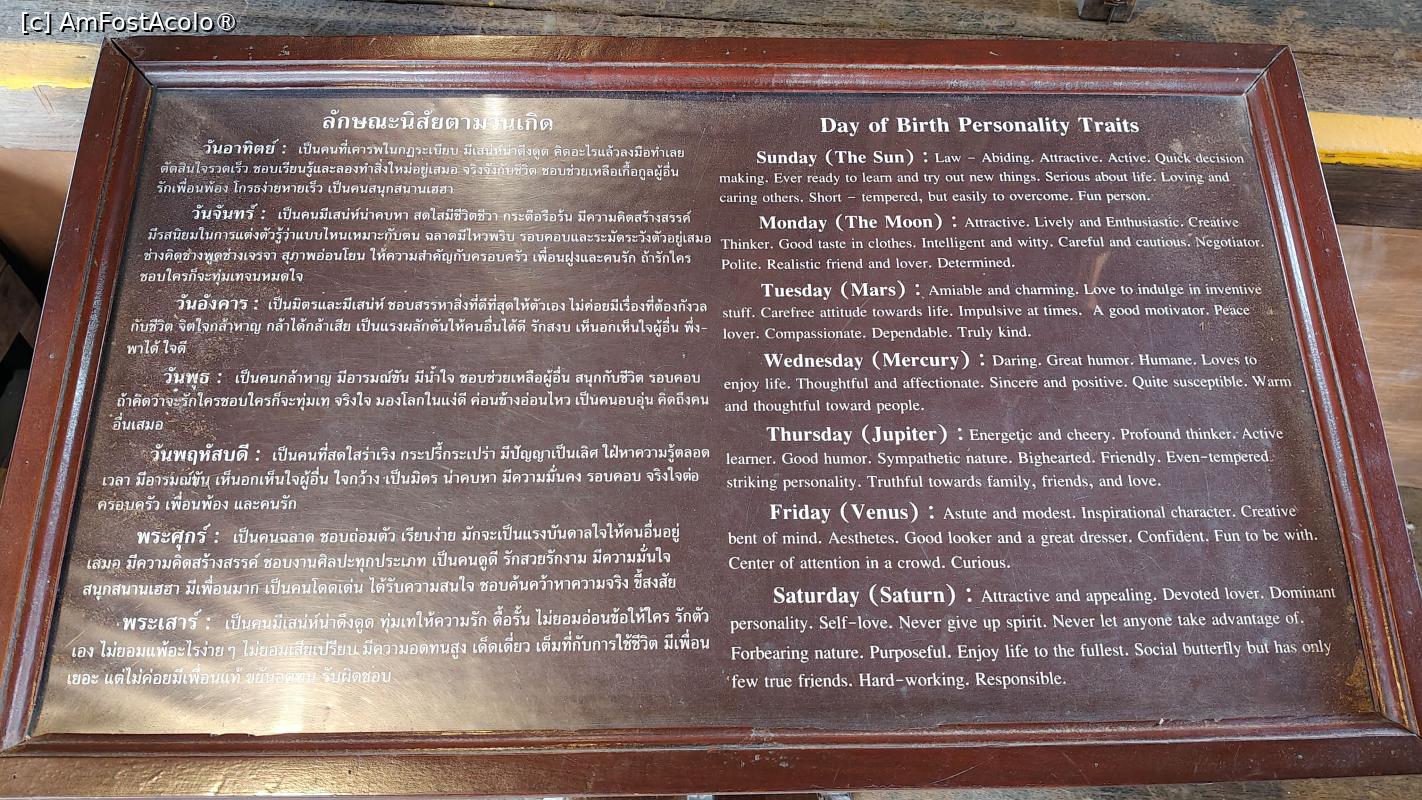 [c] AmFostAcolo®
ลักษณะนิสัยตามวันเกิด
วันอาทิตย์ : เป็นคนที่เคารพในกฎระเบียบ มีเสน่ห์น่าดึงดูด คิดอะไรแล้วลงมือทำเลย
ตัดสินใจรวดเร็ว ชอบเรียนรู้และลองทำสิ่งใหม่อยู่เสมอ จริงจังกับชีวิต ชอบช่วยเหลือเกื้อกูลผู้อื่น
รักเพื่อนพ้อง โกรธง่ายหายเร็ว เป็นคนสนุกสนานเฮฮา
วันจันทร์ : เป็นคนมีเสน่ห์น่าคบหา สดใสมีชีวิตชีวา กระตือรือร้น มีความคิดสร้างสรรค์
มีรสนิยมในการแต่งตัวรู้ว่าแบบไหนเหมาะกับตน ฉลาดมีไหวพริบ รอบคอบและระมัดระวังตัวอยู่เสมอ
ช่างคิดช่างพูดช่างเจรจา สุภาพอ่อนโยน ให้ความสำคัญกับครอบครัว เพื่อนฝูงและคนรัก ถ้ารักใคร
ชอบใครก็จะทุ่มเทจนหมดใจ
วันอังคาร : เป็นมิตรและมีเสน่ห์ ชอบสรรหาสิ่งที่ดีที่สุดให้ตัวเอง ไม่ค่อยมีเรื่องที่ต้องกังวล
กับชีวิต จิตใจกล้าหาญ กล้าได้กล้าเสีย เป็นแรงผลักดันให้คนอื่นได้ดี รักสงบ เห็นอกเห็นใจผู้อื่น พึ่ง-
พาได้ ใจดี
วันพุธ : เป็นคนกล้าหาญ มีอารมณ์ขัน มีน้ำใจ ชอบช่วยเหลือผู้อื่น สนุกกับชีวิต รอบคอบ
ถ้าคิดว่าจะรักใครชอบใครก็จะทุ่มเท จริงใจ มองโลกในแง่ดี ค่อนข้างอ่อนไหว เป็นคนอบอุ่น คิดถึงคน
อื่นเสมอ
วันพฤหัสบดี : เป็นคนที่สดใสร่าเริง กระปรี้กระเปร่า มีปัญญาเป็นเลิศ ใฝ่หาความรู้ตลอด
เวลา มีอารมณ์ขัน เห็นอกเห็นใจผู้อื่น ใจกว้าง เป็นมิตร น่าคบหา มีความมั่นคง รอบคอบ จริงใจต่อ
ครอบครัว เพื่อนพ้อง และคนรัก
พระศุกร์ : เป็นคนฉลาด ชอบถ่อมตัว เรียบง่าย มักจะเป็นแรงบันดาลใจให้คนอื่นอยู่
เสมอ มีความคิดสร้างสรรค์ ชอบงานศิลปะทุกประเภท เป็นคนดูดี รักสวยรักงาม มีความมั่นใจ
สนุกสนานเฮฮา มีเพื่อนมาก เป็นคนโดดเด่น ได้รับความสนใจ ชอบค้นคว้าหาความจริง ขี้สงสัย
พระเสาร์ : เป็นคนมีเสน่ห์น่าดึงดูด ทุ่มเทให้ความรัก ดื้อรั้น ไม่ยอมอ่อนข้อให้ใคร รักตัว
เอง ไม่ยอมแพ้อะไรง่าย ๆ ไม่ยอมเสียเปรียบ มีความอดทนสูง เด็ดเดี่ยว เต็มที่กับการใช้ชีวิต มีเพื่อน
เยอะ แต่ไม่ค่อยมีเพื่อนแท้ ขยันอดทน รับผิดชอบ
Day of Birth Personality Traits
Sunday (The Sun) : Law - Abiding. Attractive. Active. Quick decision
making. Ever ready to learn and try out new things. Serious about life. Loving and
caring others. Short - tempered, but easily to overcome. Fun person.
Monday (The Moon) : Attractive. Lively and Enthusiastic. Creative
Thinker. Good taste in clothes. Intelligent and witty. Careful and cautious. Negotiator.
Polite. Realistic friend and lover. Determined.
Tuesday (Mars) : Amiable and charming. Love to indulge in inventive
stuff. Carefree attitude towards life. Impulsive at times. A good motivator. Peace
lover. Compassionate. Dependable. Truly kind.
Wednesday (Mercury) : Daring. Great humor. Humane. Loves to
enjoy life. Thoughtful and affectionate. Sincere and positive. Quite susceptible. Warm
and thoughtful toward people.
Thursday (Jupiter) : Energetic and cheery. Profound thinker. Active
learner. Good humor. Sympathetic nature. Bighearted. Friendly. Even-tempered.
striking personality. Truthful towards family, friends, and love.
Friday (Venus) : Astute and modest. Inspirational character. Creative
bent of mind. Aesthetes. Good looker and a great dresser. Confident. Fun to be with.
Center of attention in a crowd. Curious.
Saturday (Saturn) : Attractive and appealing. Devoted lover. Dominant
personality. Self-love. Never give up spirit. Never let anyone take advantage of.
Forbearing nature. Purposeful. Enjoy life to the fullest. Social butterfly but has only
few true friends. Hard-working. Responsible.